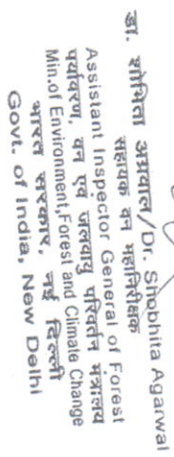 डा. शोभिता अग्रवाल/Dr. Shobhita Agarwal
सहायक वन महानिरीक्षक
Assistant Inspector General of Forest
पर्यावरण, वन एवं जलवायु परिवर्तन मंत्रालय
Min.of Environment,Forest and Climate Change
भारत सरकार, नई दिल्ली
Govt. of India, New Delhi